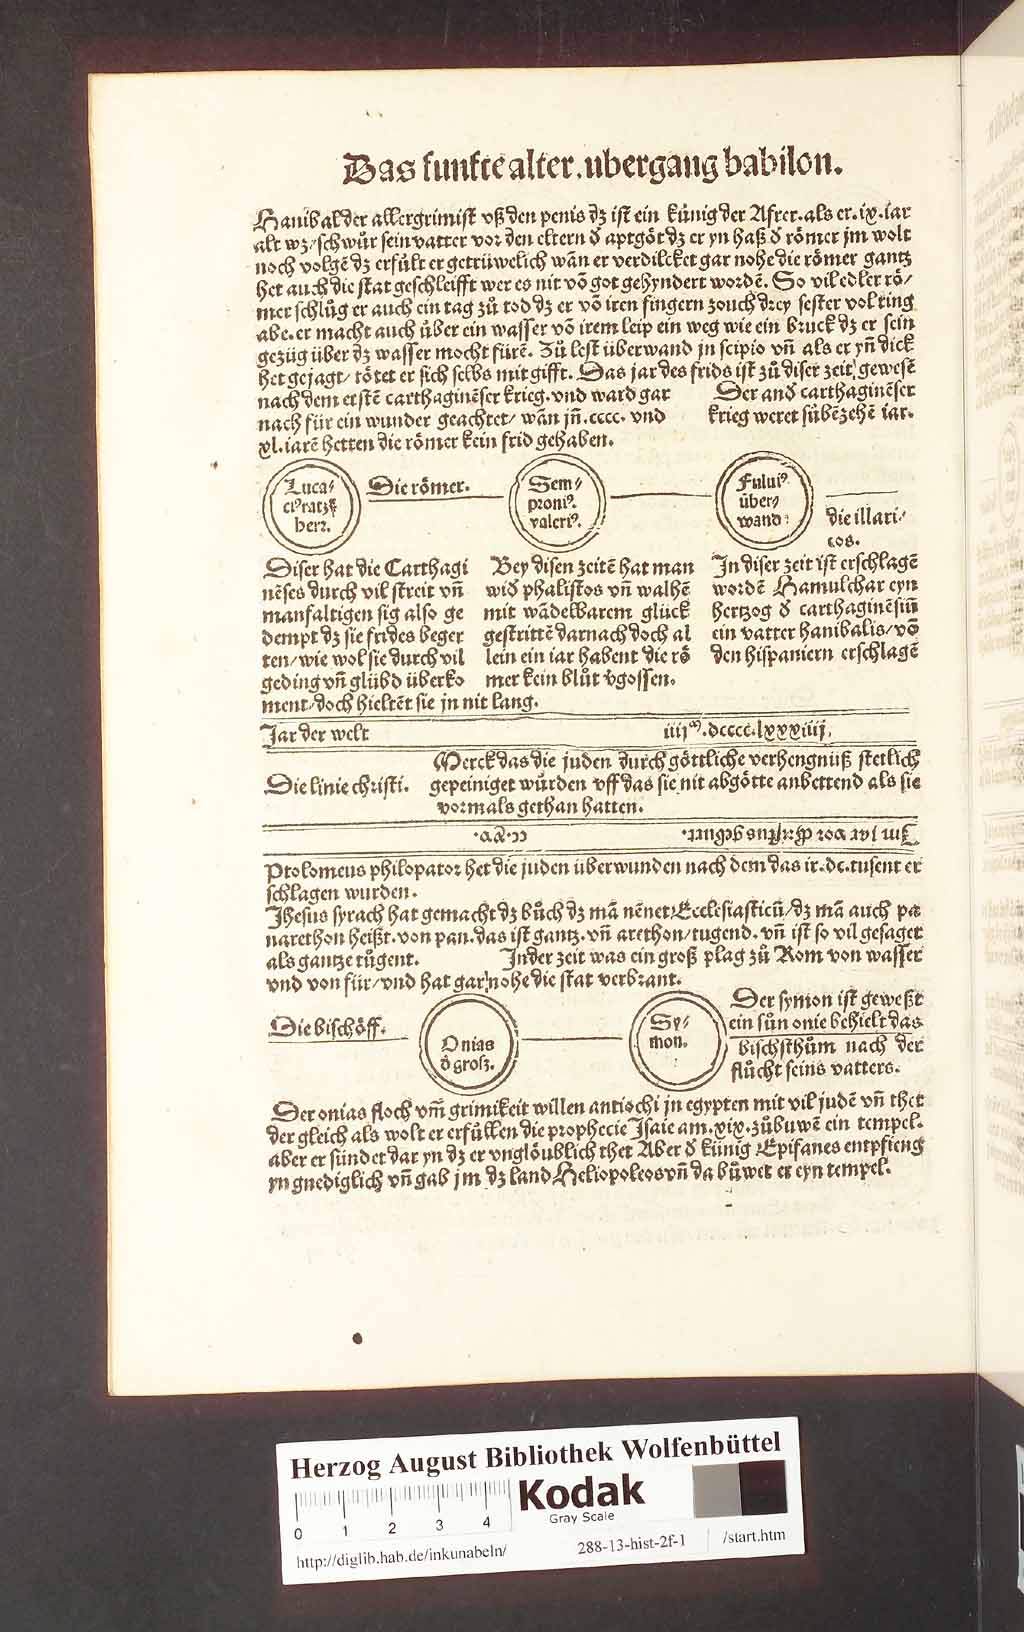 Das funfte alter. ubergang babilon.
Hanibal der allergrimist vß den penis dz ist ein kůnig der Afrer. als er. ix. iar
alt wz/ schwůr sein vatter vor den eltern d̕ aptgöt dz er yn haß d̕ römer jm wolt
noch volgē dz erfůlt er getrüwelich wañ er verdilcket gar nohe die römer gantz
het auch die stat geschleifft wer es nit vō got gehyndert wordē. So vil edler rö⸗
mer schlůg er auch ein tag zů tod dz er vō iren fingern zouch drey sester vol ring
abe. er macht auch ůber ein wasser vō irem leip ein weg wie ein bruck dz er sein
gezüg über dz wasser mocht fürē. Zů lest überwand jn scipio vñ als er yñ dick
het gejagt/ tötet er sich selbs mit gifft. Das jar des frids ist zů diser zeit gewesē
nach dem erstē carthaginēser krieg. vnd ward gar
nach für ein wunder geachtet/ wañ jñ. cccc. vnd
xl. iarē hetten die römer kein frid gehaben.
Der and̕ carthaginēser
krieg weret sübēzehē iar.
Luca⸗
ciꝰ ratzß
herr.
Die römer.
Sem⸗
proniꝰ.
valeriꝰ.
Fuluiꝰ
über⸗
wand
die illari⸗
cos.
Diser hat die Carthagi
nēses durch vil streit vñ
manfaltigen sig also ge
dempt dz sie frides beger
ten/ wie wol sie durch vil
geding vñ glübd überko
ment/ doch hieltēt sie jn nit lang.
Bey disen zeitē hat man
wid̕ phalistos vñ walhē
mit wādelbarem glück
gestrittē darnach doch al
lein ein iar habent die rö
mer kein blůt v̕gossen.
In diser zeit ist erschlagē
wordē Hamulchar eyn
hertzog d̕ carthaginēsiū
ein vatter hanibalis/ vō
den hispaniern erschlagē
Jar der welt
iiijᵐ. dcccc. lxxxiiij.
Die linie christi.
Merck das die juden durch göttliche verhengnüß stetlich
gepeiniget wůrden vff das sie nit abgötte anbettend als sie
vormals gethan hatten.
Im jar vor christus geburt.
cc. xv.
Ptolomeus philopator het die juden überwunden nach dem das ir. dc. tusent er
schlagen wurden.
Jhesus syrach hat gemacht dz bůch dz mā nēnet Ecclesiasticū/ dz mā auch pa
narethon heißt. von pan. das ist gantz. vñ arethon/ tugend. vñ ist so vil gesaget
als gantze tůgent.
In der zeit was ein groß plag zů Rom von wasser
vnd von für/ vnd hat gar nohe die stat verbrant.
Die bischöff.
Onias
d̕ grosz.
Sy⸗
mon.
Der symon ist geweßt
ein sůn onie behielt das
bischsthům nach der
flůcht seins vatters.
Der onias floch vm̄ grimikeit willen antiochi jn egypten mit vil judē vñ thet
der gleich als wolt er erfůllen die prophecie Jsaie am. xix. zůbuwē ein tempel.
aber er sündet dar yn dz er vnglöublich thet Aber d̕ künig Epifanes entpfieng
yn gnediglich vñ gab jm dz land Heliopoleos vñ da bůwet er eyn tempel.
Herzog August Bibliothek Wolfenbüttel
Kodak
Gray Scale
0 1 2 3 4
http://diglib.hab.de/inkunabeln/
288-13-hist-2f-1
/start.htm